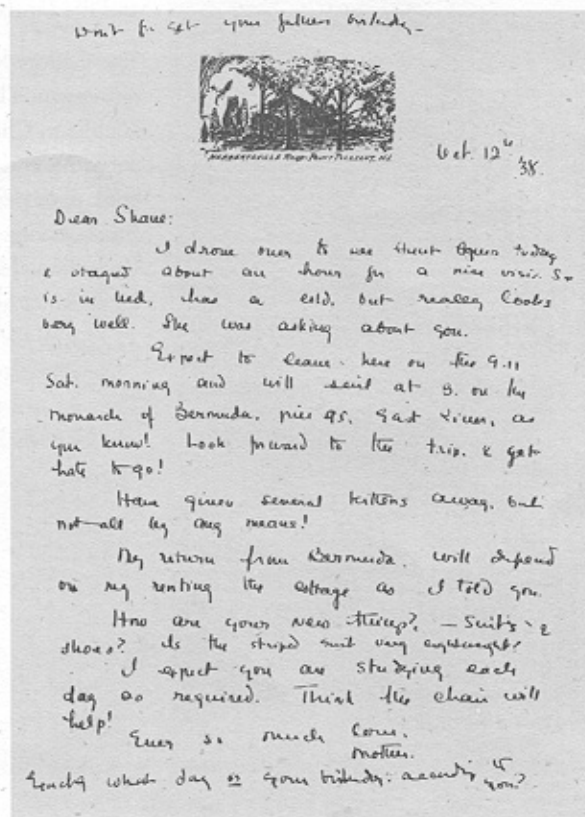 Don't forget your fathers birthday -
HERBERTSVILLE ROAD - POINT PLEASANT, N.J.
Oct. 12th
'38.
Dear Shane:
I drove over to see Aunt today
& stayed about an hour for a nice visit. She
is in bed, has a cold, but really looks
very well. She was asking about you.
Expect to leave here on the 9.11
Sat. morning and will sail at 3. on the
Monarch of Bermuda, pier 95, East River, as
you know! Look forward to the trip, & yet
hate to go!
Have given several kittens away, but
not all by any means!
My return from Bermuda, will depend
on my renting the cottage as I told you.
How are your new things?, - Suits &
shoes? Is the striped suit very
I expect you are studying each
day as required. Think the chair will
help!
Ever so much love.
Mother.
Exactly what day is your birthday: according to you?